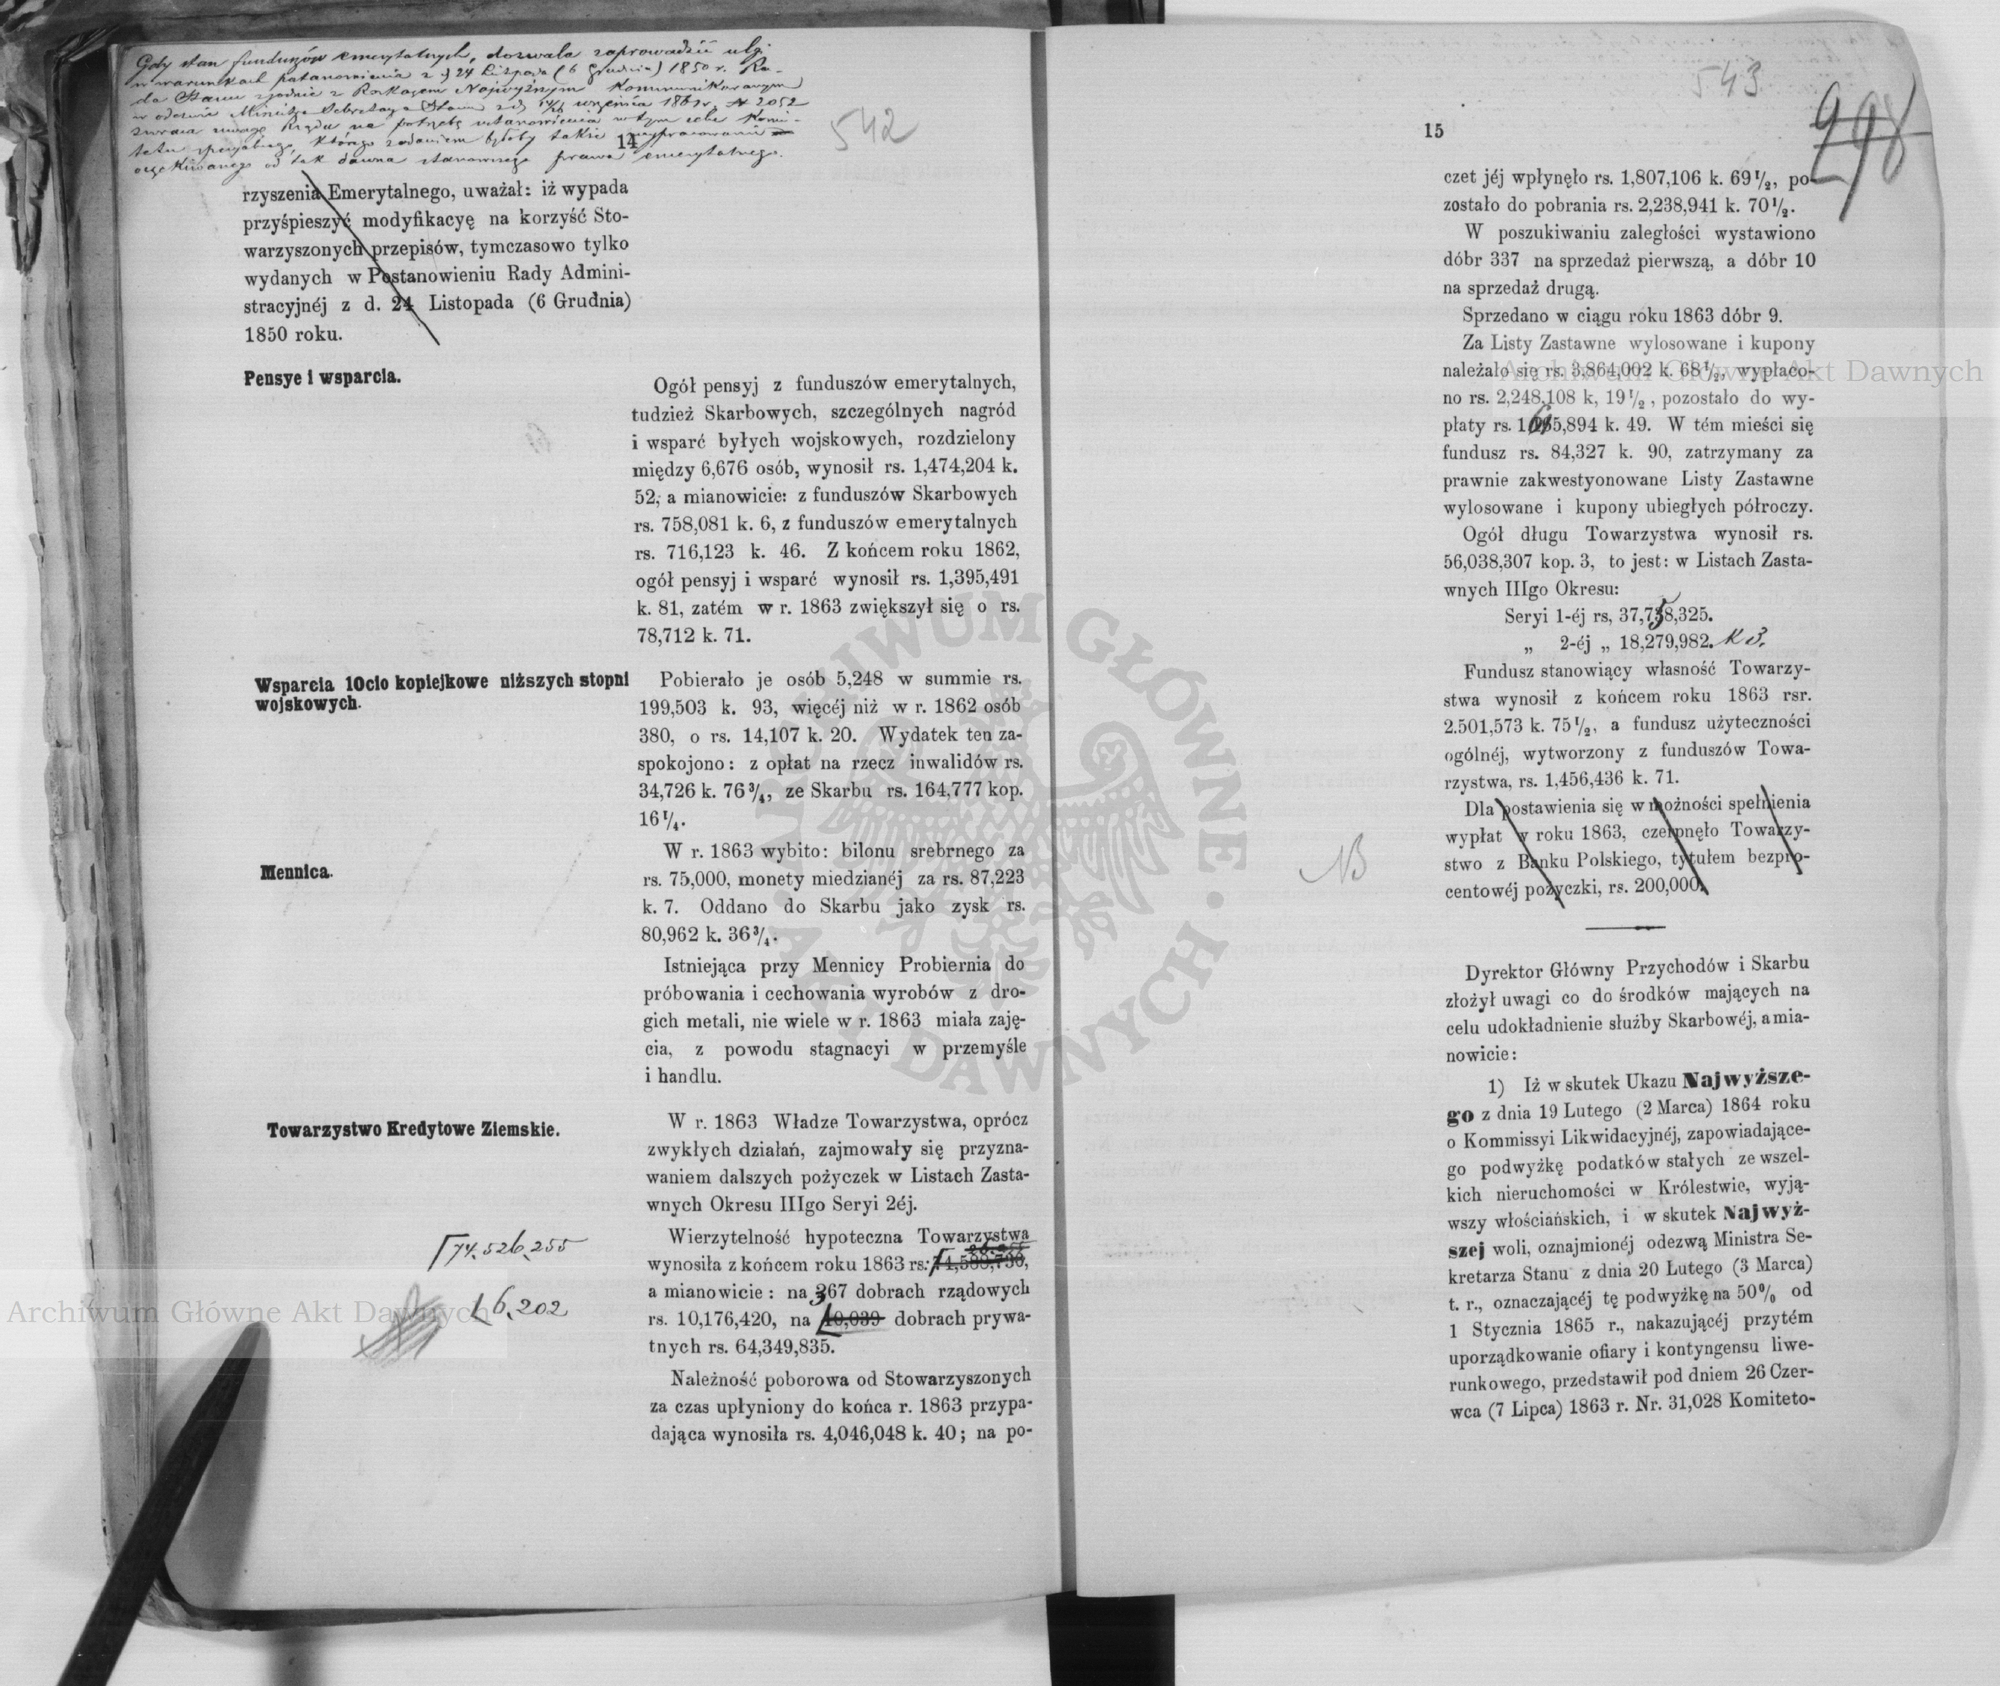 Gdy stan funduszów emerytalnych, dozwala zaprowadzić ulgi
w warunkach postanowienia z d. 24 Listopada (6 Grudnia) 1850 r. Ra-
da Stanu zgodnie z Rozkazem Najwyższym komunikowanym
w odezwie Ministra Sekretarza Stanu z d. 14/26 września 1863 r. N 2052
zwraca uwagę Rządu na potrzebę ustanowienia w tym celu Komi-
tetu specjalnego, którego zadaniem byłoby także wypracowanie
oczekiwanego od tak dawna stanowczego prawa emerytalnego.
542
14
rzyszenia Emerytalnego, uważał: iż wypada
przyśpieszyć modyfikacyę na korzyść Sto-
warzyszonych przepisów, tymczasowo tylko
wydanych w Postanowieniu Rady Admini-
stracyjnéj z d. 24 Listopada (6 Grudnia)
1850 roku.
Pensye i wsparcia.
Ogół pensyj z funduszów emerytalnych,
tudzież Skarbowych, szczególnych nagród
i wsparć byłych wojskowych, rozdzielony
między 6,676 osób, wynosił rs. 1,474,204 k.
52, a mianowicie: z funduszów Skarbowych
rs. 758,081 k. 6, z funduszów emerytalnych
rs. 716,123 k. 46. Z końcem roku 1862,
ogół pensyj i wsparć wynosił rs. 1,395,491
k. 81, zatém w r. 1863 zwiększył się o rs.
78,712 k. 71.
Wsparcia 10cio kopiejkowe niższych stopni
wojskowych.
Pobierało je osób 5,248 w summie rs.
199,503 k. 93, więcéj niż w r. 1862 osób
380, o rs. 14,107 k. 20. Wydatek ten za-
spokojono: z opłat na rzecz inwalidów rs.
34,726 k. 76 3/4, ze Skarbu rs. 164,777 kop.
16 1/4.
Mennica.
W r. 1863 wybito: bilonu srebrnego za
rs. 75,000, monety miedzianéj za rs. 87,223
k. 7. Oddano do Skarbu jako zysk rs.
80,962 k. 36 3/4.
Istniejąca przy Mennicy Probiernia do
próbowania i cechowania wyrobów z dro-
gich metali, nie wiele w r. 1863 miała zaję-
cia, z powodu stagnacyi w przemyśle
i handlu.
Towarzystwo Kredytowe Ziemskie.
W r. 1863 Władze Towarzystwa, oprócz
zwykłych działań, zajmowały się przyzna-
waniem dalszych pożyczek w Listach Zasta-
wnych Okresu IIIgo Seryi 2éj.
Wierzytelność hypoteczna Towarzystwa
wynosiła z końcem roku 1863 rs: 74,588,730,
74.526.255
a mianowicie: na 367 dobrach rządowych
rs. 10,176,420, na 10,039 dobrach prywa-
6.202
tnych rs. 64,349,835.
Należność poborowa od Stowarzyszonych
za czas upłyniony do końca r. 1863 przypa-
dająca wynosiła rs. 4,046,048 k. 40; na po-
543
298
15
czet jéj wpłynęło rs. 1,807,106 k. 69 1/2, po-
zostało do pobrania rs. 2,238,941 k. 70 1/2.
W poszukiwaniu zaległości wystawiono
dóbr 337 na sprzedaż pierwszą, a dóbr 10
na sprzedaż drugą.
Sprzedano w ciągu roku 1863 dóbr 9.
Za Listy Zastawne wylosowane i kupony
należało się rs. 3,864,002 k. 68 1/2, wypłaco-
no rs. 2,248,108 k, 19 1/2, pozostało do wy-
płaty rs. 1,615,894 k. 49. W tém mieści się
fundusz rs. 84,327 k. 90, zatrzymany za
prawnie zakwestyonowane Listy Zastawne
wylosowane i kupony ubiegłych półroczy.
Ogół długu Towarzystwa wynosił rs.
56,038,307 kop. 3, to jest: w Listach Zasta-
wnych IIIgo Okresu:
Seryi 1-éj rs, 37,758,325.
„ 2-éj „ 18,279,982. k 3.
Fundusz stanowiący własność Towarzy-
stwa wynosił z końcem roku 1863 rsr.
2.501,573 k. 75 1/2, a fundusz użyteczności
ogólnéj, wytworzony z funduszów Towa-
rzystwa, rs. 1,456,436 k. 71.
Dla postawienia się w możności spełnienia
wypłat w roku 1863, czerpnęło Towarzy-
stwo z Banku Polskiego, tytułem bezpro-
centowéj pożyczki, rs. 200,000.
NB
Dyrektor Główny Przychodów i Skarbu
złożył uwagi co do środków mających na
celu udokładnienie służby Skarbowéj, a mia-
nowicie:
1) Iż w skutek Ukazu Najwyższe-
go z dnia 19 Lutego (2 Marca) 1864 roku
o Kommissyi Likwidacyjnéj, zapowiadające-
go podwyżkę podatków stałych ze wszel-
kich nieruchomości w Królestwie, wyją-
wszy włościańskich, i w skutek Najwyż-
szej woli, oznajmionéj odezwą Ministra Se-
kretarza Stanu z dnia 20 Lutego (3 Marca)
t. r., oznaczającéj tę podwyżkę na 50% od
1 Stycznia 1865 r., nakazującéj przytém
uporządkowanie ofiary i kontyngensu liwe-
runkowego, przedstawił pod dniem 26 Czer-
wca (7 Lipca) 1863 r. Nr. 31,028 Komiteto-
Archiwum Główne Akt Dawnych
Archiwum Główne Akt Dawnych
ARCHIWUM GŁÓWNE · AKT DAWNYCH ·